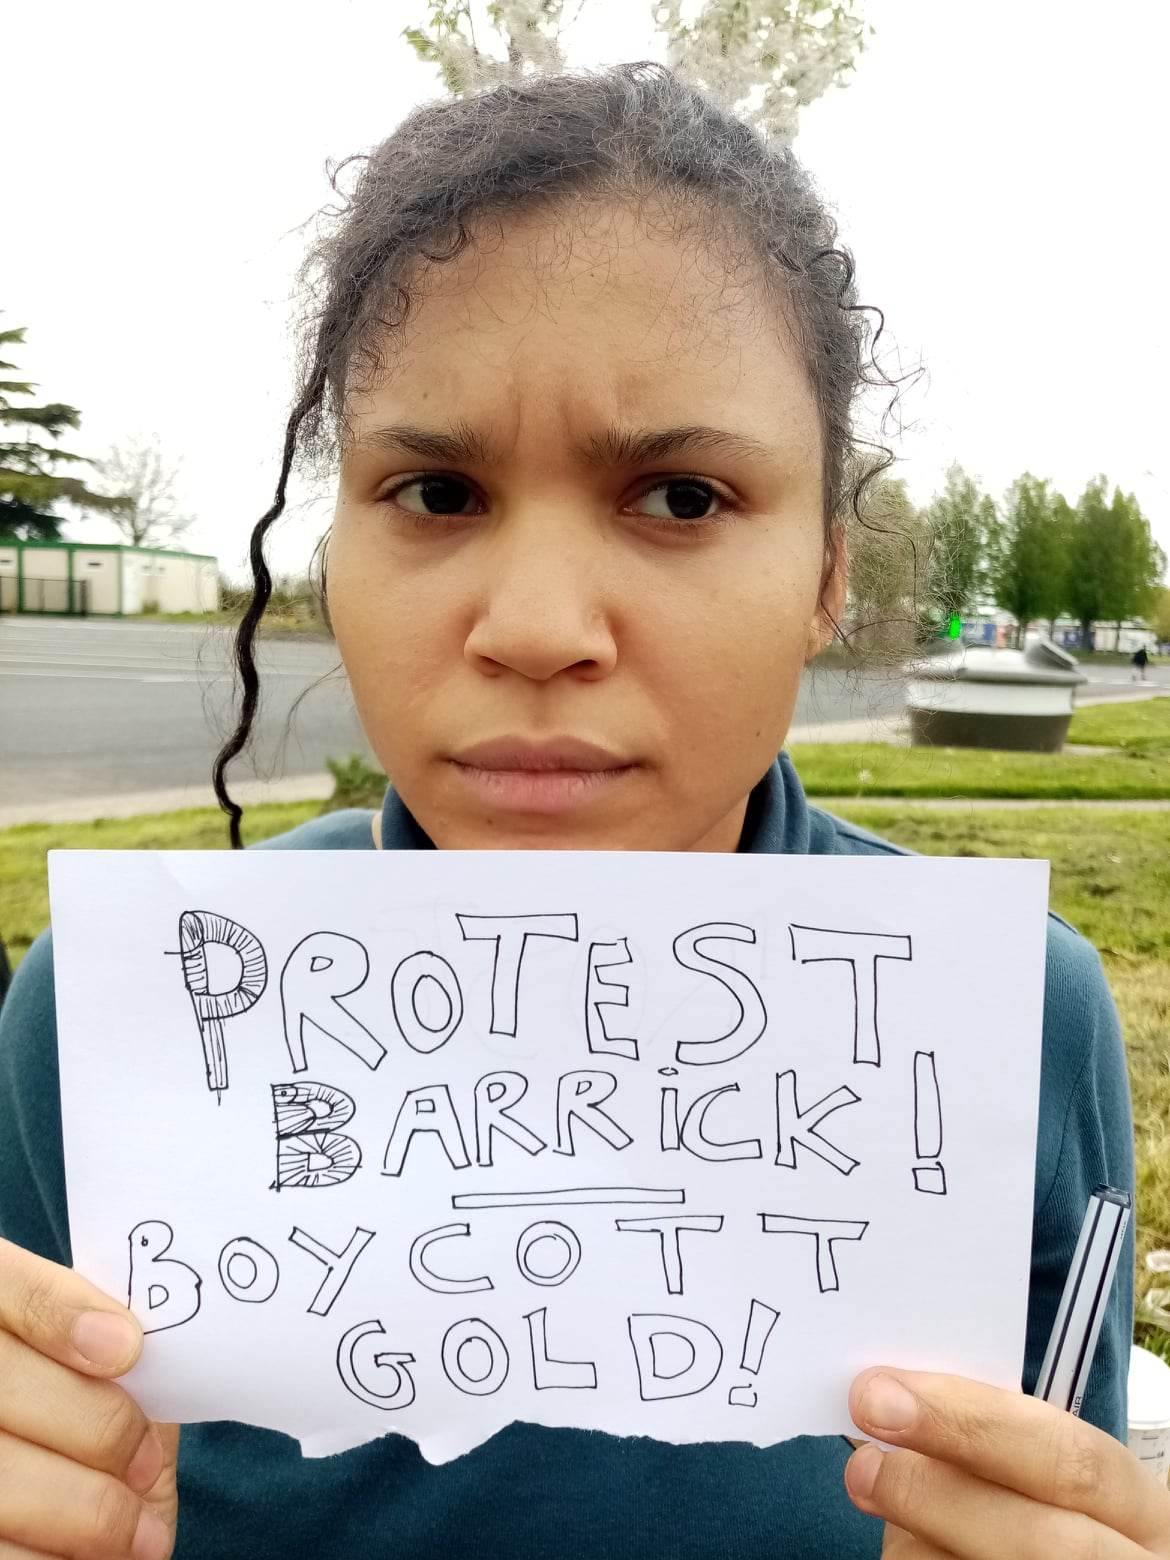 PROTEST
BARRiCK!
BOYCOTT
GOLD!
AIR